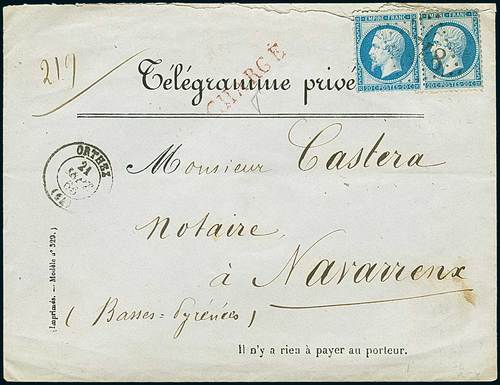 EMPIRE FRANC.
EMPIRE FRANC.
20 C POSTES 20 C
20 C POSTES 20 C
217
CHARGÉ
Télégramme privé
ORTHEZ
21
Monsieur Castera
Notaire
à Navarrenx
(Basses-Pyrénées)
(Imprimés. — Modèle nº 329.)
Il n'y a rien à payer au porteur.